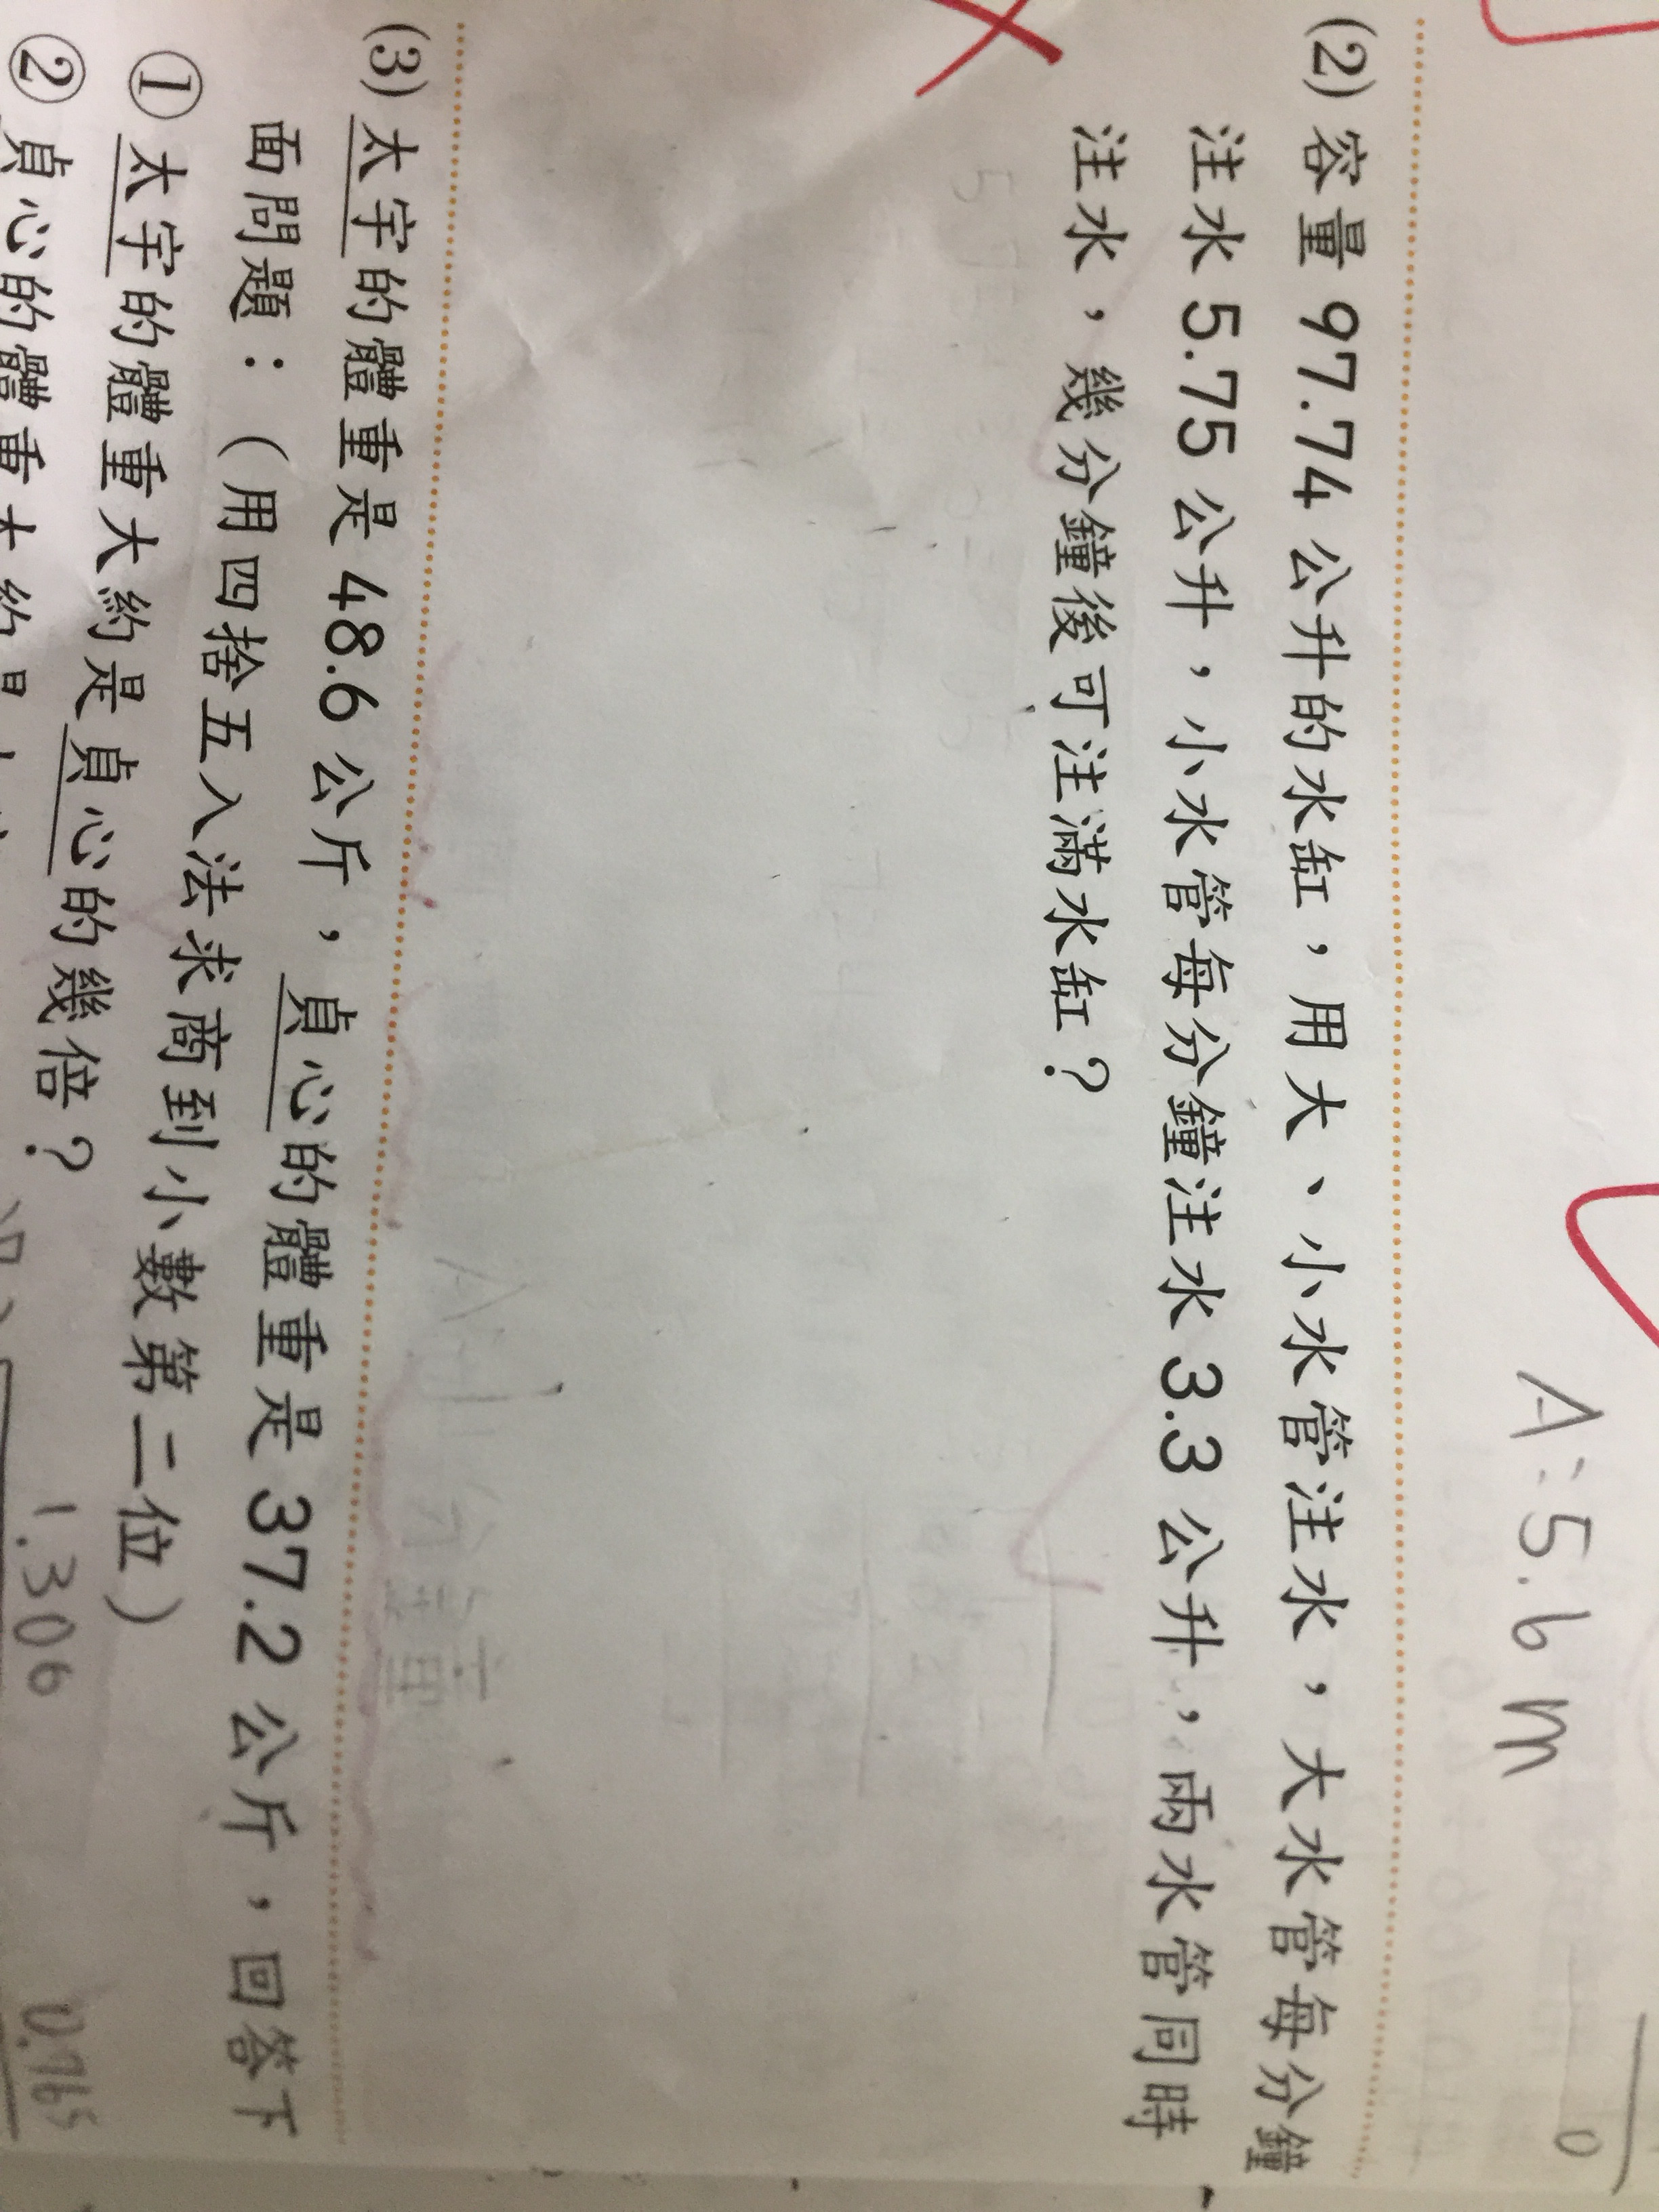 A:5.6m
0
(2) 容量 97.74 公升的水缸，用大、小水管注水，大水管每分鐘
注水 5.75 公升，小水管每分鐘注水 3.3 公升，兩水管同時
注水，幾分鐘後可注滿水缸？
(3) 太宇的體重是 48.6 公斤，貞心的體重是 37.2 公斤，回答下
面問題：（用四捨五入法求商到小數第二位）
① 太宇的體重大約是貞心的幾倍？
② 貞心的體重大約是
1.306
0.765